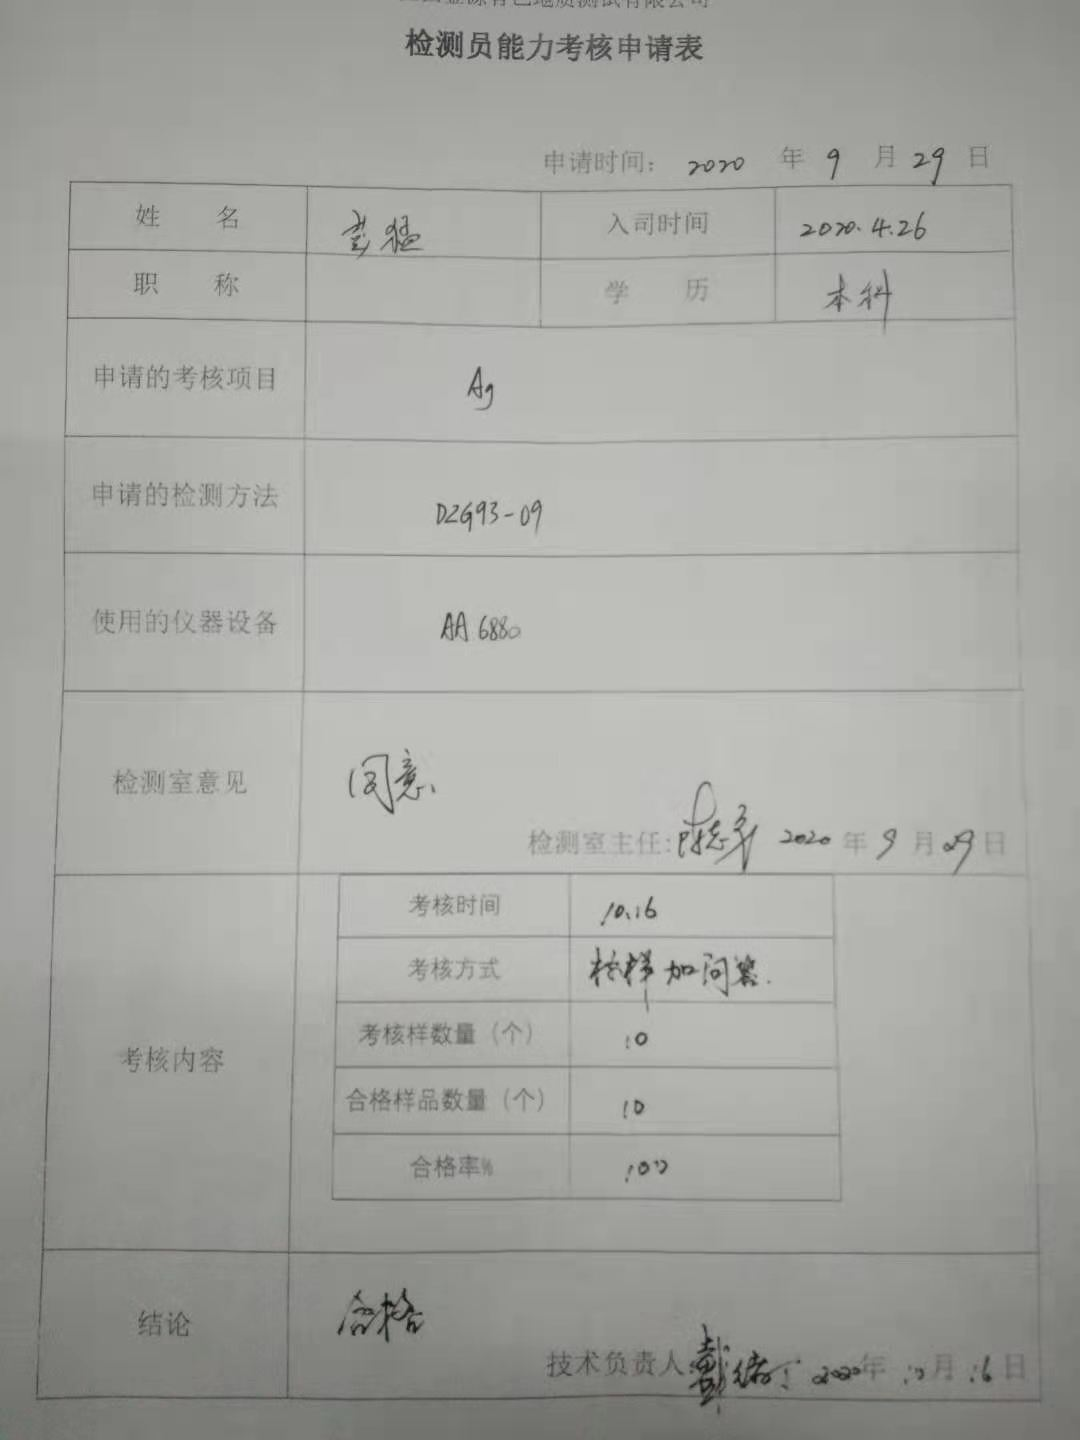 检测员能力考核申请表
申请时间: 2020 年 9 月 29 日
姓 名 彭猛 入司时间 2020.4.26
职 称 学 历 本科
申请的考核项目 Ag
申请的检测方法 DZG93-09
使用的仪器设备 AA 6880
检测室意见 同意
检测室主任: 2020 年 9 月 29 日
考核内容
考核时间 10.16
考核方式 加问答.
考核样数量（个） 10
合格样品数量（个） 10
合格率% 100
结论 合格
技术负责人 2020 年 10 月 16 日